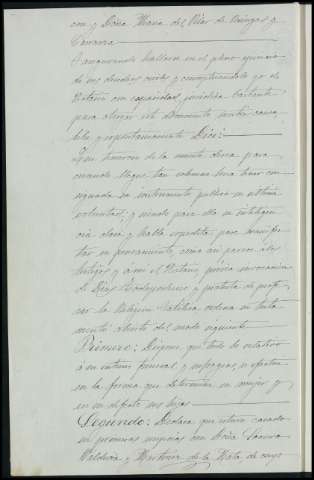 con y Doña Maria del Pilar de Aringo y
Navarra
Asegurando hallarse en el pleno ejercicio
de sus derechos civiles y cumpliendole yo el
Notario con capacidad juridica bastante
para otorgar este documento
y espontaneamente Dice:
Que temeroso de la muerte desea para
cuando llegue tan solemne hora
en instrumento publico su ultima
voluntad; y siendo para ello su inteligen
cia clara y habla expedita para manifes
tar su pensamiento, como asi parece a los
testigos y a mi el Notario, previa invocacion
de Dios Todopoderoso y protesta de profe
sar la Religion Catolica, ordena su testa
mento abierto del modo siguiente
Primero: Dispone que todo lo relativo
á su entierro funeral y sufragios, se efectue
en la forma que determinen su mujer y
en su defecto sus hijos
Segundo: Declara que estuvo casado
en primeras nupcias con Doña
Valdivia y de la Mata de cuyo